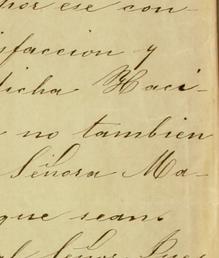 por ese con-
isfaccion y
dicha Haci-
no tambien
Señora Ma-
que sean
el Señor Jues